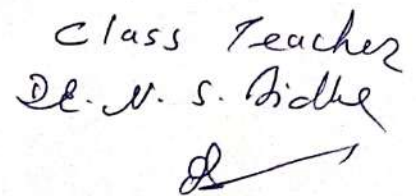 Class Teacher
Dr. N. S. Sidhu